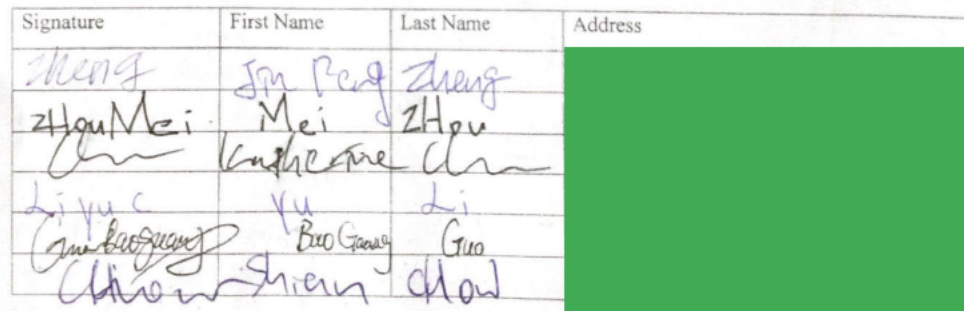 Signature First Name Last Name Address
Zheng Jin Peng Zheng
ZHou Mei Mei ZHou
Katherine
Li yu c Yu Li
Guo Bao Guang Bao Guang Guo
Chow Shien Chow